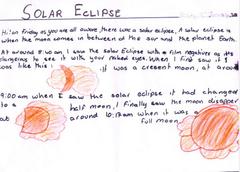 SOLAR ECLIPSE
Hi! on Friday as you are all aware, there was a solar eclipse. A solar eclipse is
when the moon comes in between at the sun and the planet Earth.
At around 8:40 am I saw the Solar Eclipse with a film negatives as its
dangerous to see it with your naked eyes. When I first saw it
was like this : It was a cresent moon, at arou
9:00 am when I saw the solar eclipse it had changed
to a half moon, I finally saw the moon disapper
at around 10:17am when it was a
full moon.